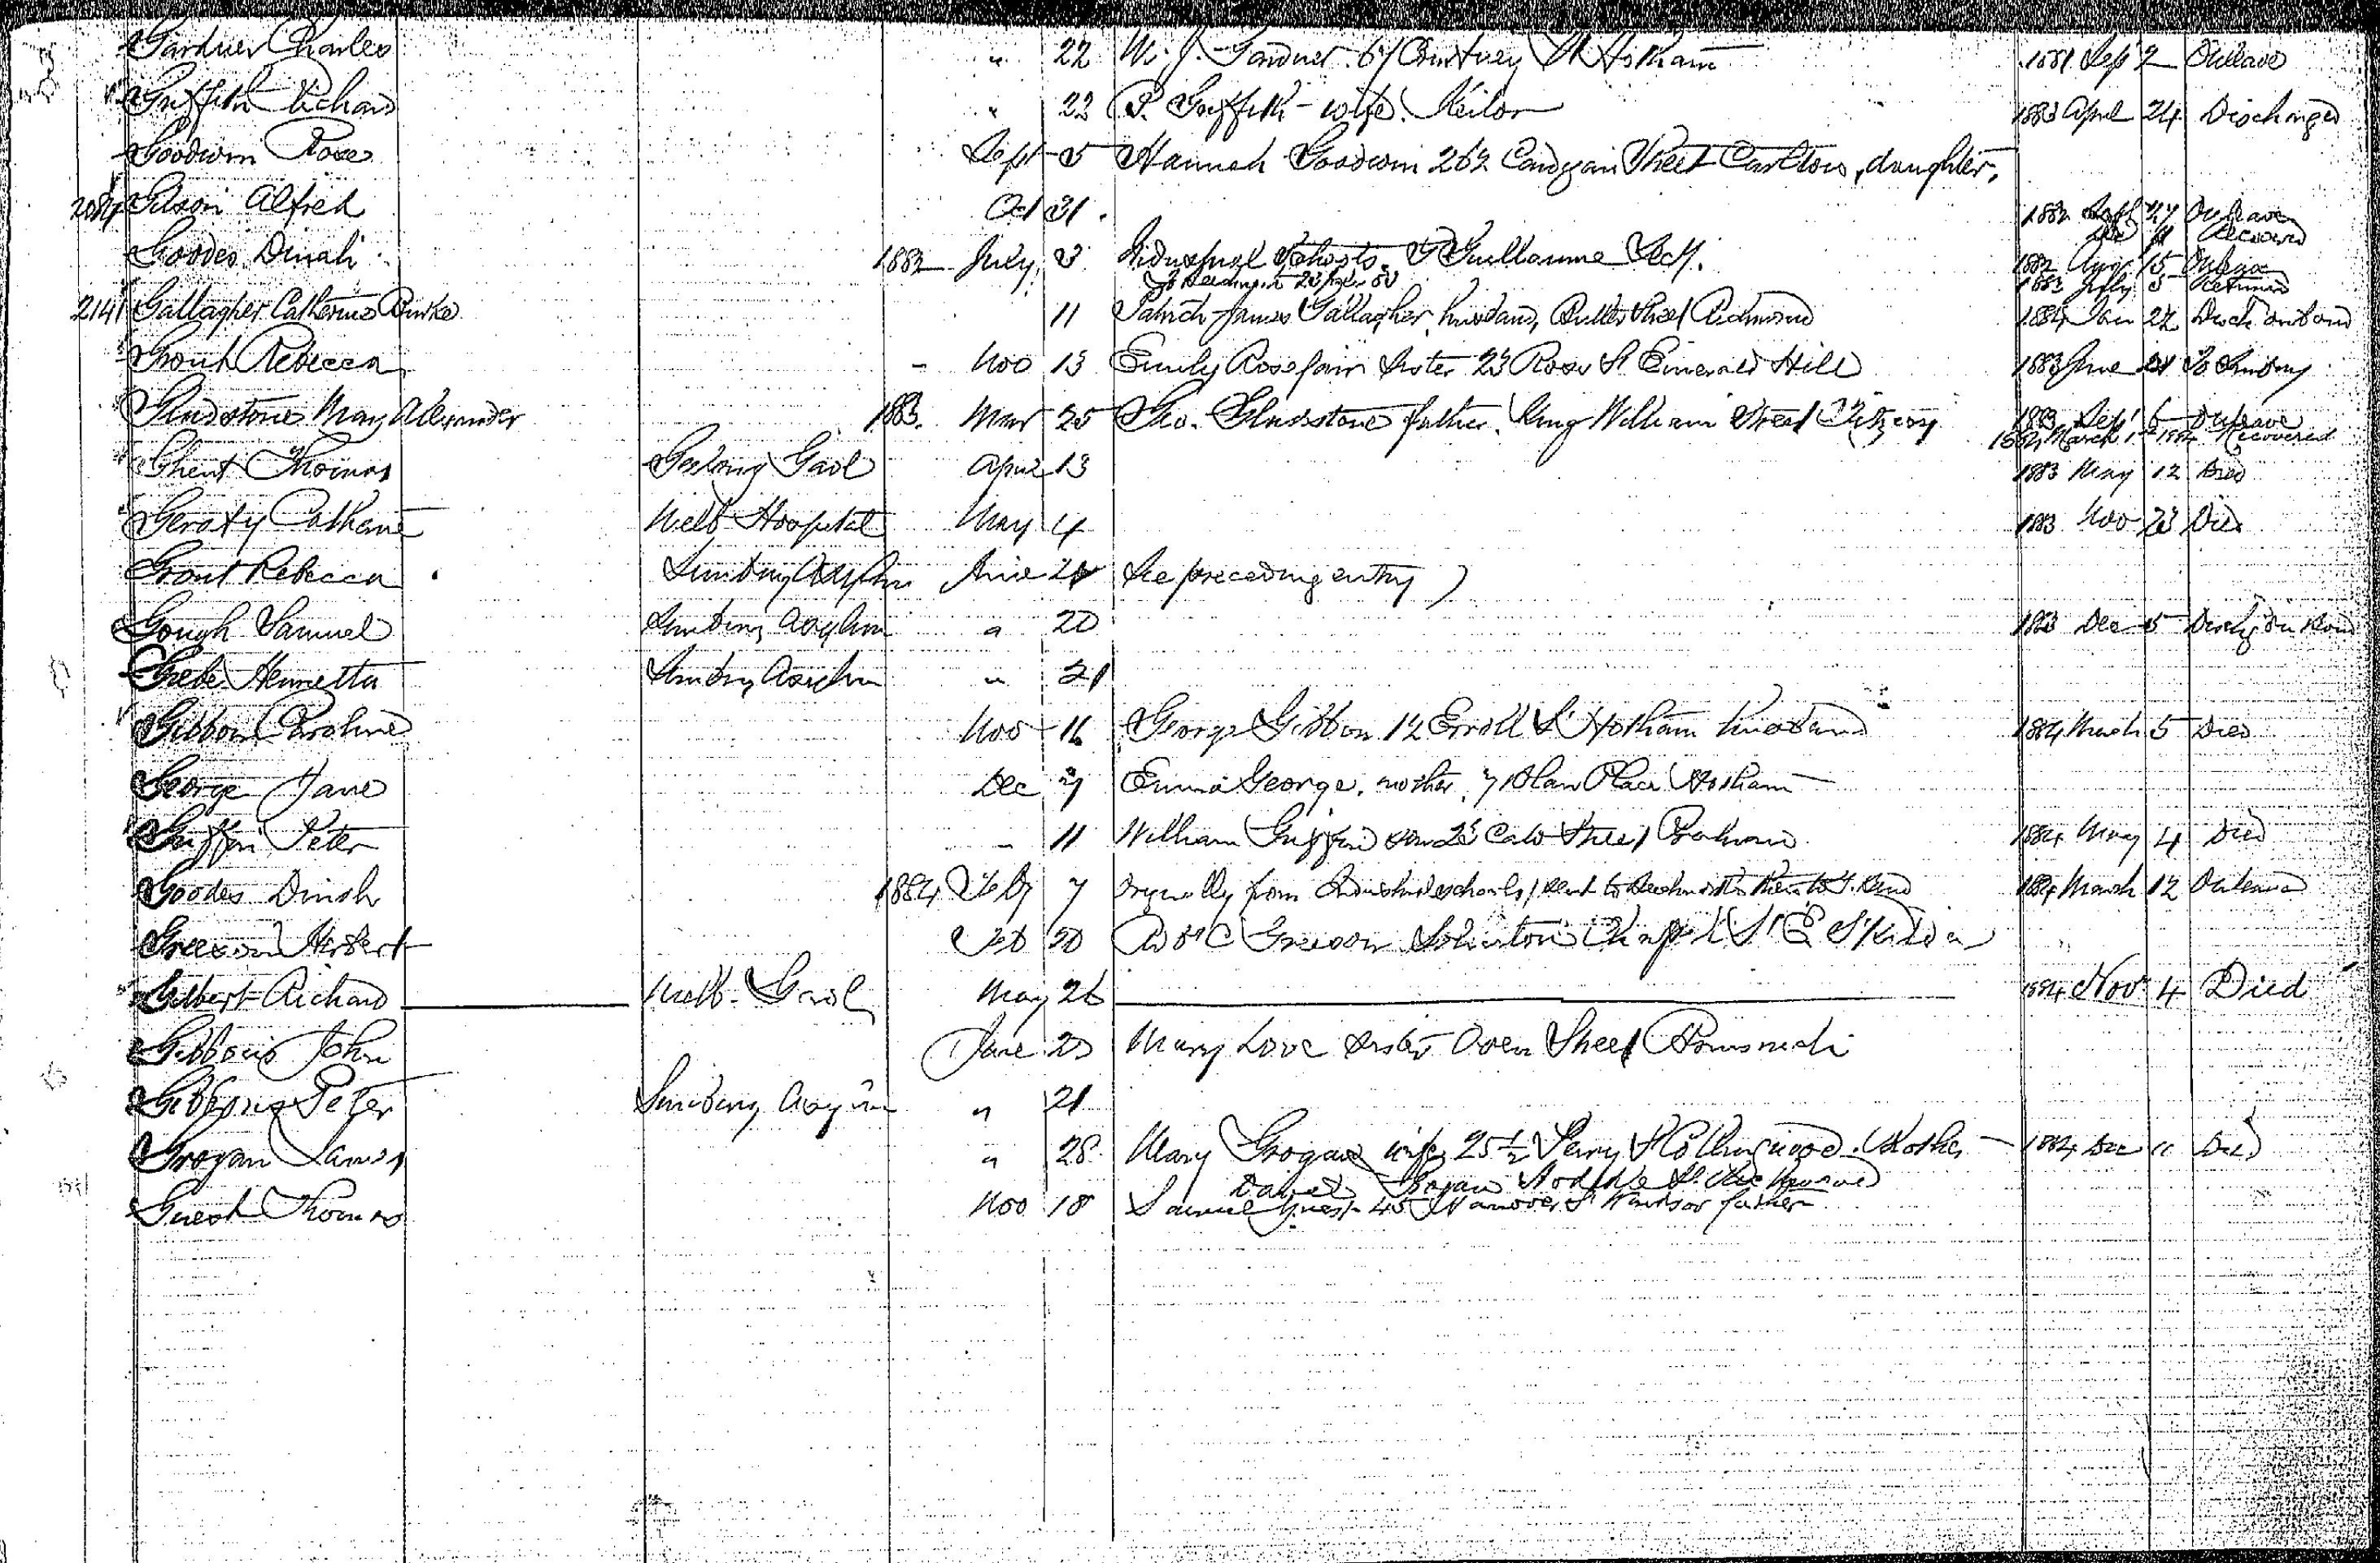 Gardner Charles " 22 W. J. Gardner 67 Courtney St Hotham 1881 Sep 2 On leave
Griffith Richard " 22 P. Griffith - wife. Keilor 1883 April 24 Discharged
Goodwin Rose Sept 5 Hannah Goodwin 262 Cardigan Street Carlton, daughter,
2084 Gilson Alfred Oct 31. 1882 Sept 27 On leave
Recovered
Goodes Dinah 1882 July 3 Industrial Schools. Guillaume Secy. 1882 Aug 15 On leave
1883 July 5 Returned
2141 Gallagher Catherine Burke 11 Patrick James Gallagher, husband, Butler Street Richmond 1884 Jan 22 Disch on bond
Grant Rebecca - Nov 13 Emily Rosefair Sister 23 Ross St Emerald Hill 1883 June 21 To Sunbury
Gladstone May Alexander 1883. Mar 25 Geo. Gladstone father. King William Street Fitzroy 1883 Sept 6 On leave
1884 March 1st 1884 Recovered
Ghent Thomas Geelong Gaol April 13 1883 May 12 Died
Geraty Catherine Melb Hospital May 4 1883 Nov 23 Died
Grant Rebecca Sunbury Asylum June 21 See preceding entry )
Gough Samuel Sunbury Asylum " 20 1883 Dec 5 Disch on Bond
Grebe Henrietta Sunbury Asylum " 21
Gibbon Caroline Nov 16 George Gibbon 12 Erroll St Hotham husband 1884 March 5 Died
George Jane Dec 7 Emma George, mother, 7 Place Hotham
Griffin Peter - 11 William Griffin son Street Prahran 1884 May 4 Died
Goodes Dinah 1884 Feby 7 Originally from Industrial schools / sent to 1884 March 12 On leave
Greeson Herbert Feb 20 Greeson Solicitor Chapel St E St Kilda
Gilbert Richard Melb. Gaol May 26 1884 Nov 4 Died
Gibbons John June 23 Mary Love sister Oven Street
Gibbons Peter Sunbury Asylum " 21
Grogan James " 28 Mary Grogan wife, 25½ Perry St Collingwood. Brother 1884 Dec 11 Died
Daniel Grogan Hoddle St Richmond
Guest Thomas Nov 18 Samuel Guest 45 Hanover St Windsor father